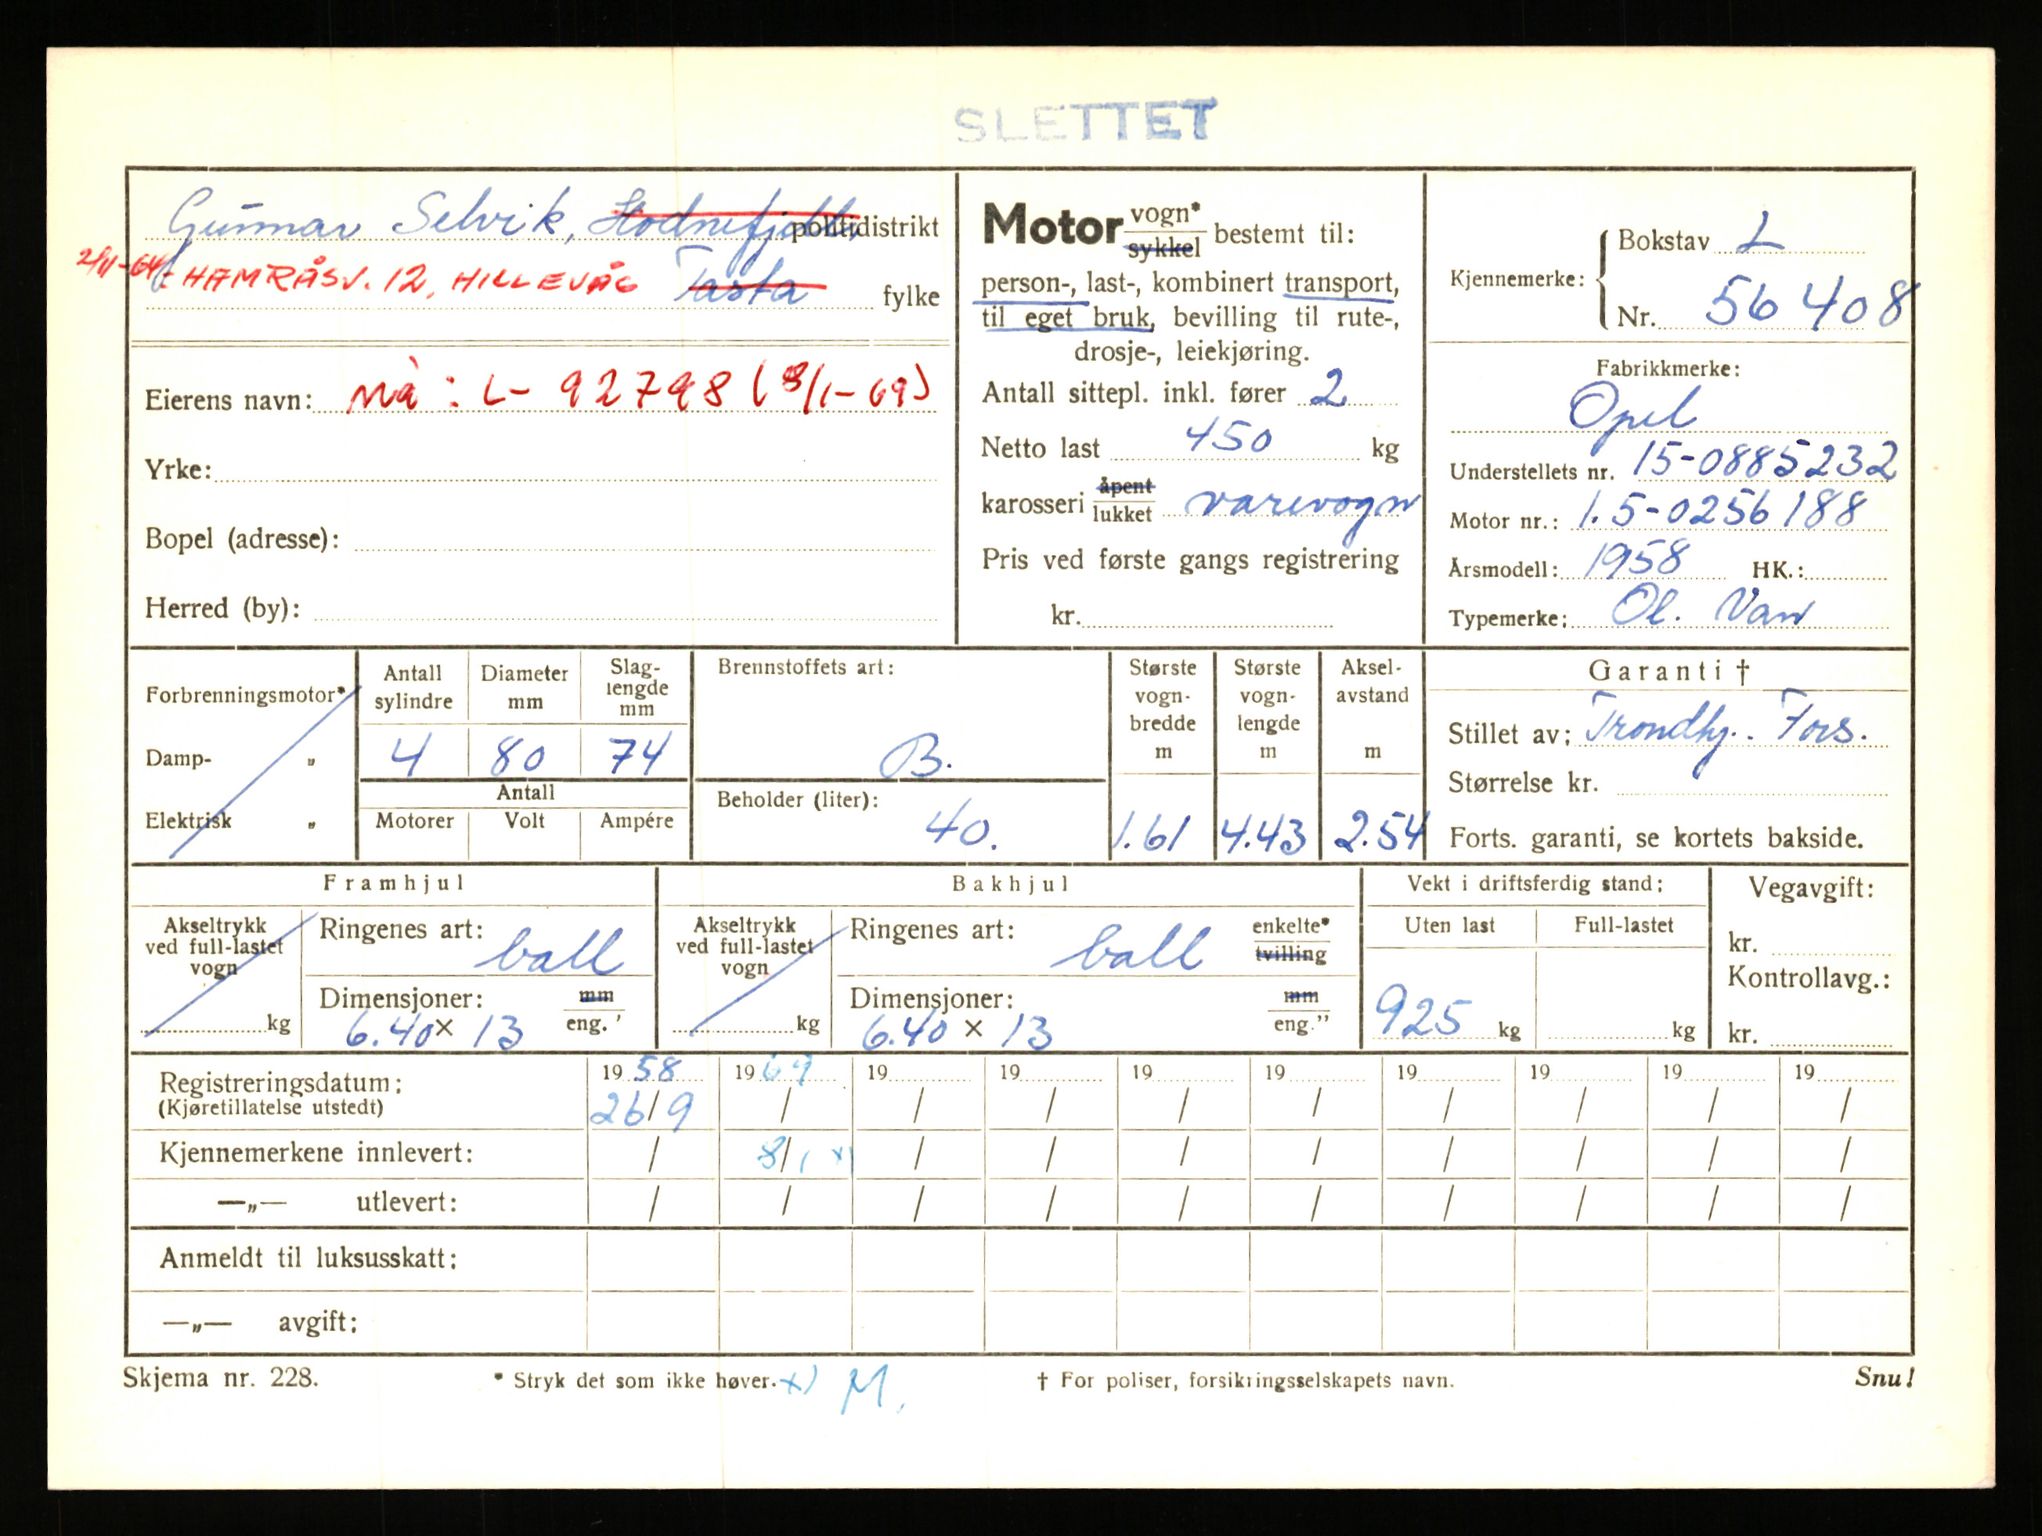 SLETTET
Gunnar Selvik, Hodnefjell, politidistrikt
2/11-64. HAMRÅSV. 12, HILLEVÅG Tasta fylke
Eierens navn: Nå: L- 92798 (8/1-69)
Yrke:
Bopel (adresse):
Herred (by):
Motor vogn* sykkel bestemt til:
person-, last-, kombinert transport,
til eget bruk, bevilling til rute-,
drosje-, leiekjøring.
Antall sittepl. inkl. fører 2
Netto last 450 kg
karosseri åpent lukket varevogn
Pris ved første gangs registrering
kr.
Kjennemerke: Bokstav L
Nr. 56408
Fabrikkmerke:
Opel
Understellets nr. 15-0885232
Motor nr.: 1.5-0256188
Årsmodell: 1958 HK.:
Typemerke: Ol. Van
Forbrenningsmotor*
Damp- „
Elektrisk „
Antall sylindre Diameter mm Slag-lengde mm
4 80 74
Antall
Motorer Volt Ampére
Brennstoffets art:
B.
Beholder (liter):
40.
Største vogn-bredde m 1.61
Største vogn-lengde m 4.43
Aksel-avstand m 2.54
Garanti †
Stillet av: Trondhj. Fors.
Størrelse kr.
Forts. garanti, se kortets bakside.
Framhjul
Akseltrykk ved full-lastet vogn kg
Ringenes art: ball
Dimensjoner: mm eng. '
6.40 x 13
Bakhjul
Akseltrykk ved full-lastet vogn kg
Ringenes art: ball enkelte* tvilling
Dimensjoner: mm eng. "
6.40 x 13
Vekt i driftsferdig stand:
Uten last Full-lastet
925 kg kg
Vegavgift:
kr.
Kontrollavg.:
kr.
Registreringsdatum: 19 58 19 69 19 19 19 19 19 19 19 19
(Kjøretillatelse utstedt) 26/9 / / / / / / / / /
Kjennemerkene innlevert: / 8/1 x) / / / / / / / /
—„— utlevert: / / / / / / / / / /
Anmeldt til luksusskatt:
—„— avgift:
Skjema nr. 228. * Stryk det som ikke høver. x) M. † For poliser, forsikringsselskapets navn. Snu!